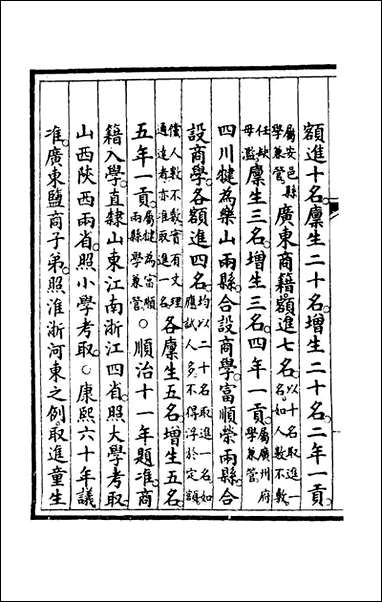 額進十名。廩生二十名。增生二十名。二年一貢。屬安邑縣學兼管
廣東商籍。額進七名。以十名取進一名。如人數不敷。任缺毋濫。廩生三名。增生三名。四年一貢。屬廣州府學兼管
四川犍為樂山兩縣合設商學。富順榮兩縣合
設商學。各額進四名。均以二十名取進一名。如應試人多。不得浮於定額。
儻人數不敷。實有文理通達者。亦准取進一名。各廩生五名。增生五名。
五年一貢。屬犍為富順兩縣學兼管○順治十一年題准。商
籍入學。直隸山東江南浙江四省。照大學考取。
山西陝西兩省。照小學考取。○康熙六十年議
准。廣東鹽商子弟。照淮浙河東之例。取進童生